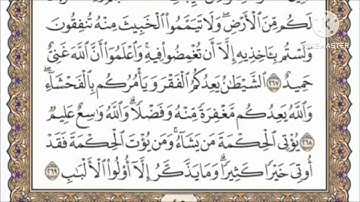 لَكُم مِّنَ ٱلْأَرْضِ ۖ وَلَا تَيَمَّمُوا۟ ٱلْخَبِيثَ مِنْهُ تُنفِقُونَ
وَلَسْتُم بِـَٔاخِذِيهِ إِلَّآ أَن تُغْمِضُوا۟ فِيهِ ۚ وَٱعْلَمُوٓا۟ أَنَّ ٱللَّهَ غَنِىٌّ
حَمِيدٌ ٢٦٧ ٱلشَّيْطَٰنُ يَعِدُكُمُ ٱلْفَقْرَ وَيَأْمُرُكُم بِٱلْفَحْشَآءِ ۖ
وَٱللَّهُ يَعِدُكُم مَّغْفِرَةً مِّنْهُ وَفَضْلًا ۗ وَٱللَّهُ وَٰسِعٌ عَلِيمٌ ٢٦٨
يُؤْتِى ٱلْحِكْمَةَ مَن يَشَآءُ ۚ وَمَن يُؤْتَ ٱلْحِكْمَةَ فَقَدْ
أُوتِىَ خَيْرًا كَثِيرًا ۗ وَمَا يَذَّكَّرُ إِلَّآ أُو۟لُوا۟ ٱلْأَلْبَٰبِ ٢٦٩